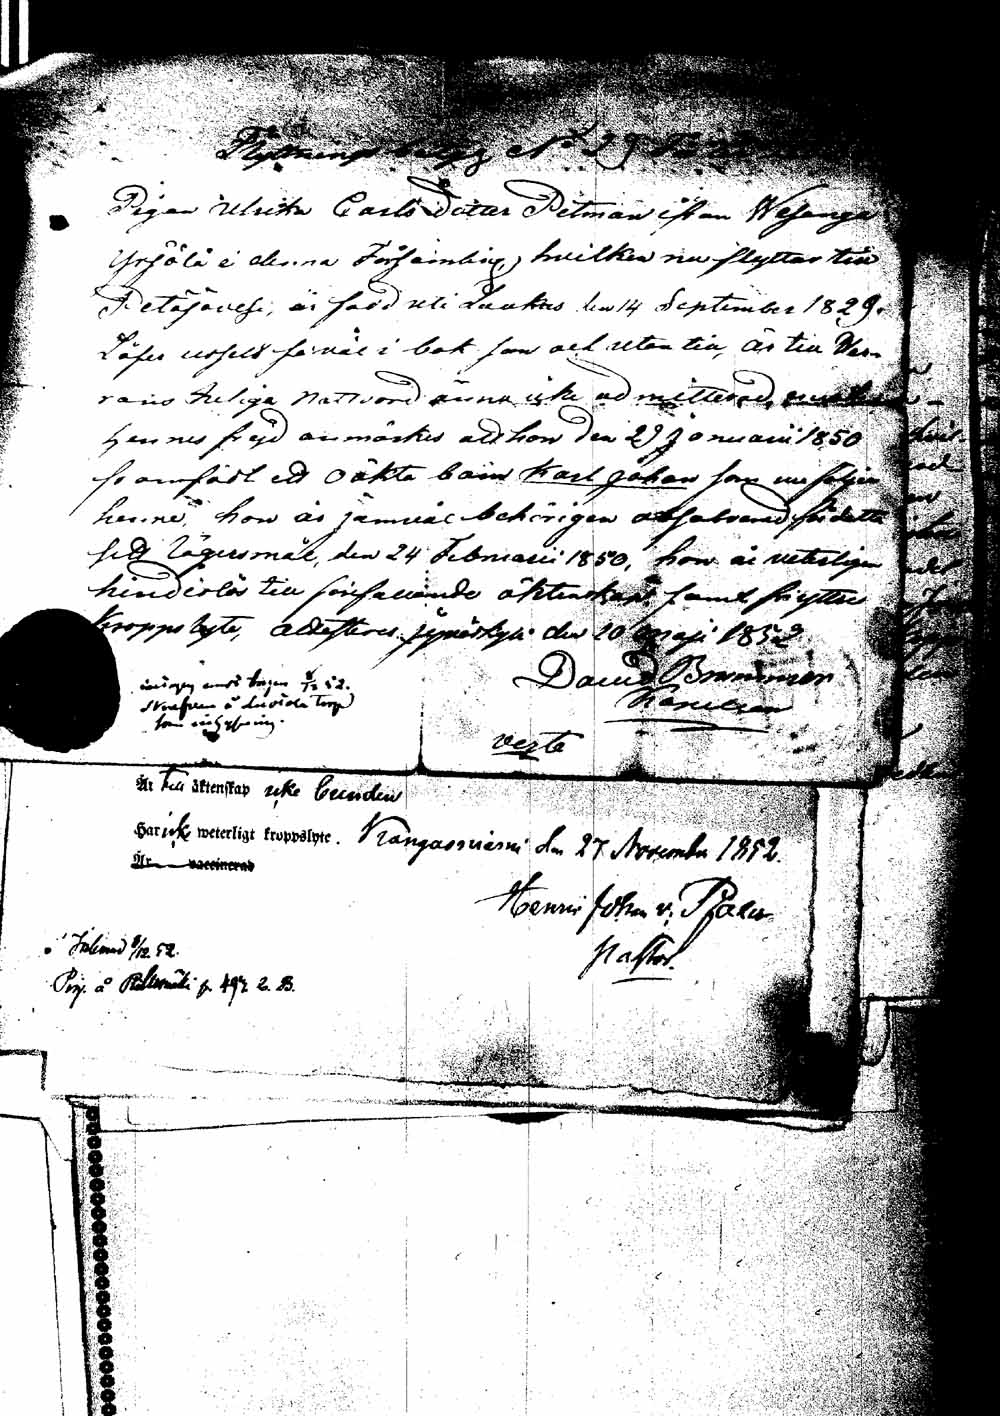 Flyttnings betyg No 29
Pigan Ulrika Carls Dotter Petman ifrån Wesanga
Yrjölä i denna Församling, hvilken nu flyttar till
Petäjävesi, är född uti Laukas den 14 September 1829.
Läser i bok som och utan till, är till Her-
rans heliga Nattvard ännu icke admitterad,
hennes frejd anmärkes att hon den 29 Januarii 1850
framfödt ett oäkta barn Karl Johan som nu följer
henne, hon är jämväl behörigen absolverad för detta
sitt Lägersmål, den 24 Februarii 1850, hon är veterligen
hinderlös till förfallande äktenskap, samt
kroppslyte, attesteras Jyväskylä den 20 Maji 1852
David Brummer
Kapellan
verte
Är till äktenskap icke bunden
Har icke weterligt kroppslyte. Kangasniemi den 27 November 1852.
Är vaccinerad
Henric Johan v. Pfaler
Pastor.
Inlemnad 8/12 52.
Pig. å p. 497 2. B.